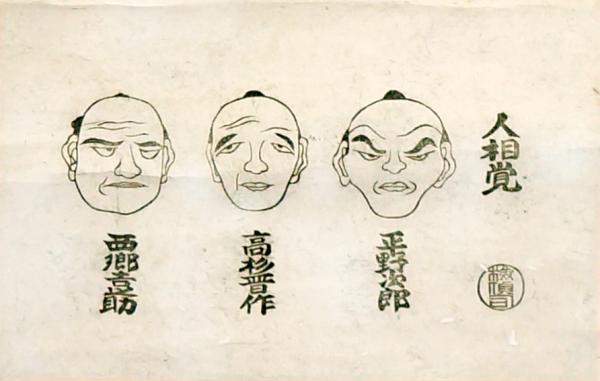 人相覚
平野次郎
高杉晋作
西郷